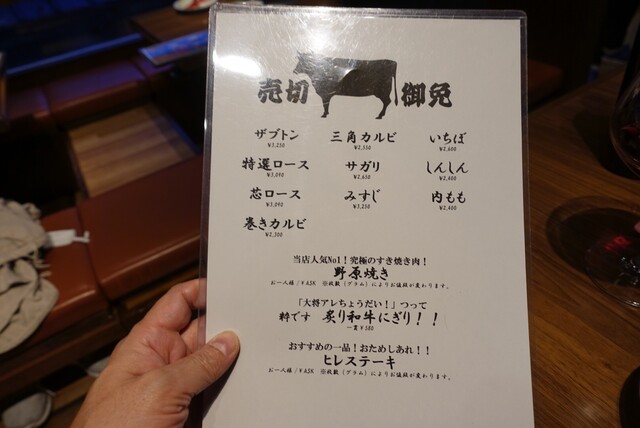 売切 御免
ザブトン 三角カルビ いちぼ
¥3,250 ¥2,530 ¥2,600
特選ロース サガリ しんしん
¥3,090 ¥2,650 ¥2,400
芯ロース みすじ 内もも
¥3,090 ¥3,250 ¥2,400
巻きカルビ
¥2,300
当店人気No1！究極のすき焼き肉！
野原焼き
お一人様／¥ASK ※枚数（グラム）によりお値段が変わります。
「大将アレちょうだい！」つって
粋です 炙り和牛にぎり！！
一貫¥580
おすすめの一品！おためしあれ！！
ヒレステーキ
お一人様／¥ASK ※枚数（グラム）によりお値段が変わります。